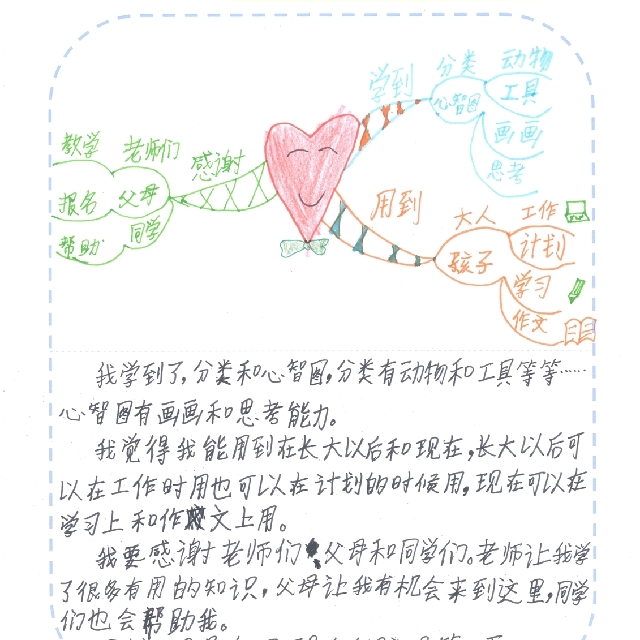 学到
分类
动物
工具
心智图
画画
思考
教学
老师们
感谢
报名
父母
帮助
同学
用到
大人
工作
计划
孩子
学习
作文
我学到了,分类和心智图,分类有动物和工具等等……
心智图有画画和思考能力。
我觉得我能用到在长大以后和现在,长大以后可
以在工作时用也可以在计划的时候用,现在可以在
学习上和作文上用。
我要感谢老师们父母和同学们。老师让我学
了很多有用的知识,父母让我有机会来到这里,同学
们也会帮助我。